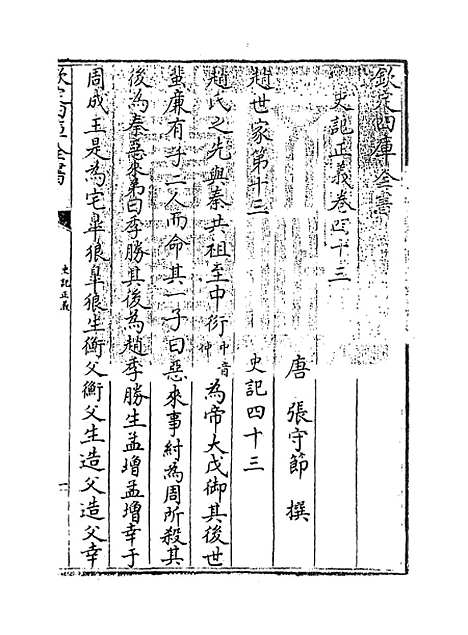 欽定四庫全書
史記正義卷四十三
唐 張守節 撰
趙世家第十三 史記四十三
趙氏之先與秦共祖至中衍中音仲為帝大戊御其後世
蜚廉有子二人而命其一子曰惡來事紂為周所殺其
後為秦惡來弟曰季勝其後為趙季勝生孟增孟增幸于
周成王是為宅皋狼皋狼生衡父衡父生造父造父幸
欽定四庫全書
史記正義
一